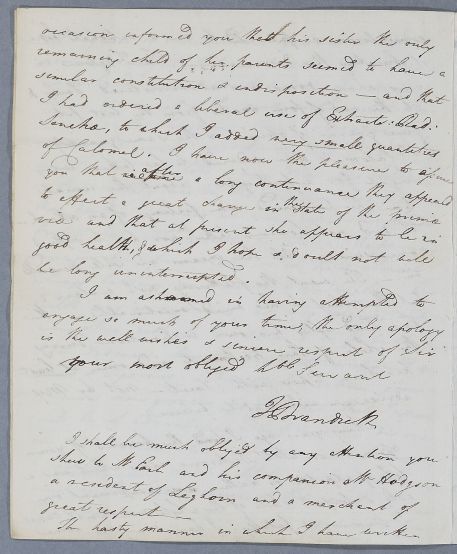 occasion informed you that his sister the only
remaining child of his parents seemed to have a
similar constitution & indisposition — and that
I had ordered a liberal use of Extracti: Glad:
to which I added very small quantities
of Calomel. I have now the pleasure to assure
you that after a long continuance they appeared
to effect a great change in the state of the primæ
viæ and that at present she appears to be in
good health, & which I hope & doubt not will
be long uninterrupted.
I am ashamed in having attempted to
engage so much of your time, the only apology
is the well wishes & sincere respect of Sir
your most obliged Hble Servant
I shall be much obliged by any attention you
shew to Mr Earl and his companion Mr Hodgson
a resident of Leghorn and a merchant of
great respect —
The hasty manner in which I have written